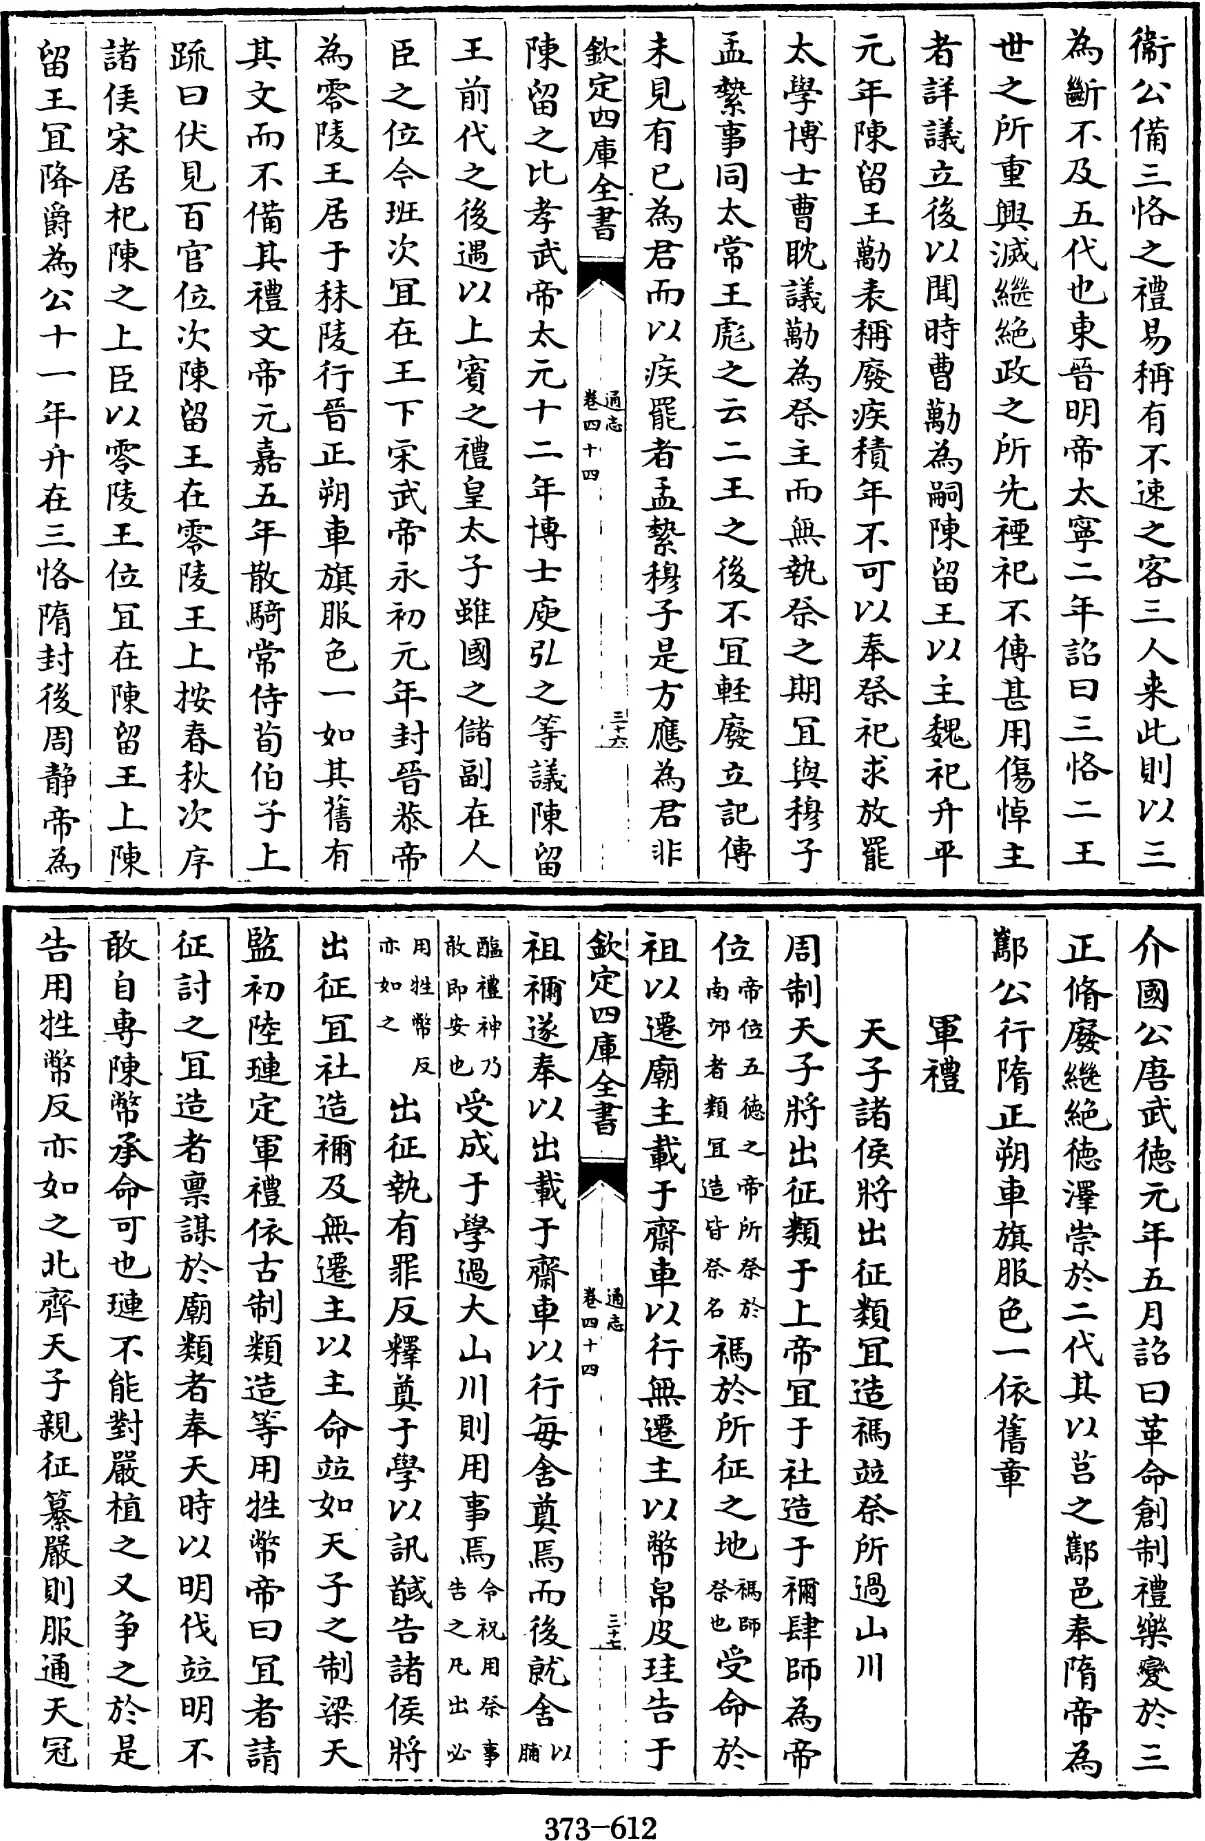 衞公備三恪之禮易稱有不速之客三人來此則以三
為斷不及五代也東晉明帝太寧二年詔曰三恪二王
世之所重興滅繼絶政之所先禋祀不傳甚用傷悼主
者詳議立後以聞時曹勱為嗣陳留王以主魏祀升平
元年陳留王勱表稱廢疾積年不可以奉祭祀求放罷
太學博士曹耽議勱為祭主而無執祭之期冝與穆子
孟縶事同太常王彪之云二王之後不冝輕廢立記傳
未見有已為君而以疾罷者孟縶穆子是方應為君非
欽定四庫全書
通志
卷四十四
三十六
陳留之比孝武帝太元十二年博士庾弘之等議陳留
王前代之後遇以上賓之禮皇太子雖國之儲副在人
臣之位今班次冝在王下宋武帝永初元年封晉恭帝
為零陵王居于秣陵行晉正朔車旗服色一如其舊有
其文而不備其禮文帝元嘉五年散騎常侍荀伯子上
疏曰伏見百官位次陳留王在零陵王上按春秋次序
諸侯宋居杞陳之上臣以零陵王位冝在陳留王上陳
留王冝降爵為公十一年升在三恪隋封後周靜帝為
介國公唐武德元年五月詔曰革命創制禮樂變於三
正脩廢繼絶德澤崇於二代其以莒之酅邑奉隋帝為
酅公行隋正朔車旗服色一依舊章
軍禮
天子諸侯將出征類冝造禡竝祭所過山川
周制天子將出征類于上帝冝于社造于禰肆師為帝
位帝位五德之帝所祭於南郊者類冝造皆祭名禡於所征之地禡師祭也受命於
祖以遷廟主載于齋車以行無遷主以幣帛皮珪告于
欽定四庫全書
通志
卷四十四
三十七
祖禰遂奉以出載于齋車以行每舍奠焉而後就舍以脯
醢禮神乃敢即安也受成于學過大山川則用事焉令祝用祭事告之凡出必
用牲幣反亦如之出征執有罪反釋奠于學以訊馘告諸侯將
出征冝社造禰及無遷主以主命竝如天子之制梁天
監初陸璉定軍禮依古制類造等用牲幣帝曰冝者請
征討之冝造者禀謀於廟類者奉天時以明伐竝明不
敢自專陳幣承命可也璉不能對嚴植之又争之於是
告用牲幣反亦如之北齊天子親征纂嚴則服通天冠
373-612